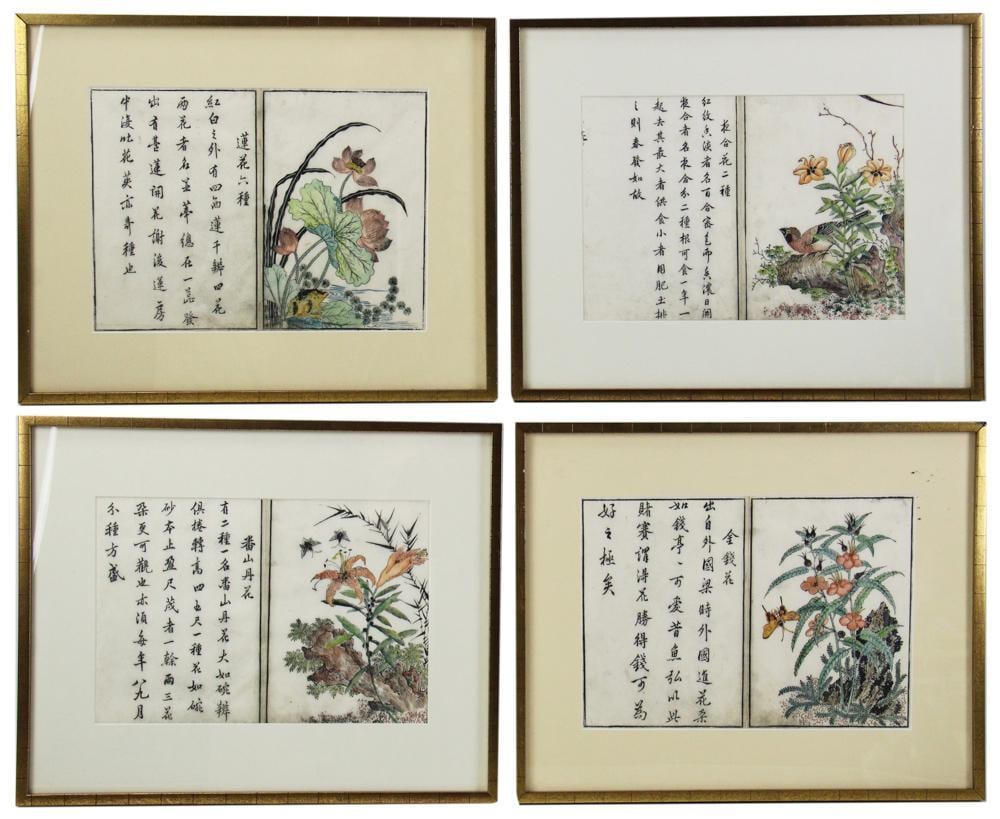 蓮花六種
紅白之外有四面蓮千瓣四花
兩花者名並蒂總在一蕊發
出有臺蓮開花謝後蓮房
中復吐花英亦奇種也
夜合花二種
紅紋香淡者名百合蜜色而香濃日開
夜合者名夜合分二種根可食一年一
起去其最大者供食小者用肥土排
之則春發如故
番山丹花
有二種一名番山丹花大如碗瓣
俱捲轉高四五尺一種花如硃
砂本止盈尺茂者一幹兩三花
朶更可觀也亦須每年八九月
分種方盛
金錢花
出自外國梁時外國進花朵
如錢亭〻可愛昔魚弘以此
賭賽謂得花勝得錢可為
好之極矣